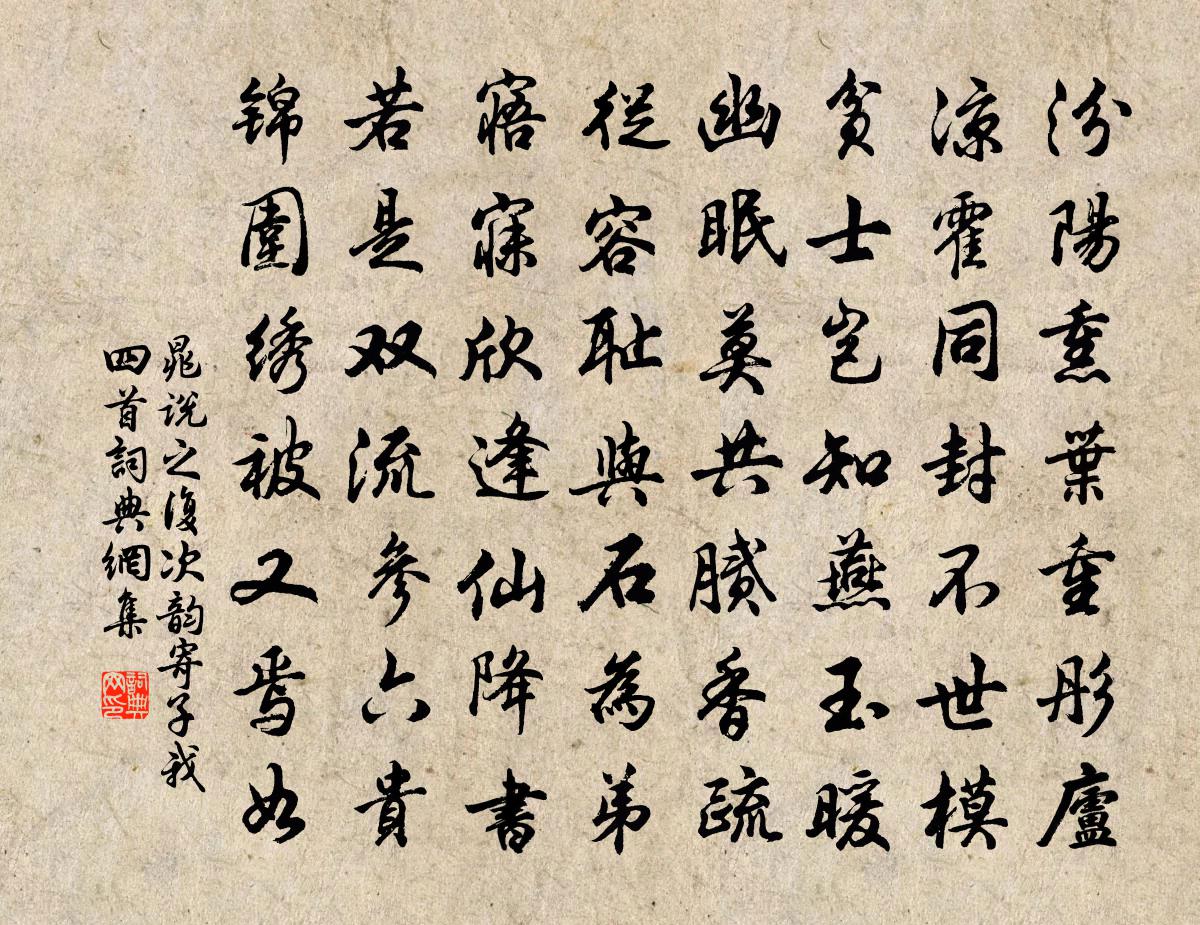 汾陽熏業重彤廬
涼霍同封不世模
貧士豈知燕玉暖
幽眠莫共膩香疏
從容耻與石為弟
寤寐欣逢仙降書
若是双流參六貴
锦圍绣被又焉如
晁说之復次韵寄子我
四首詞典網集
詞典网印